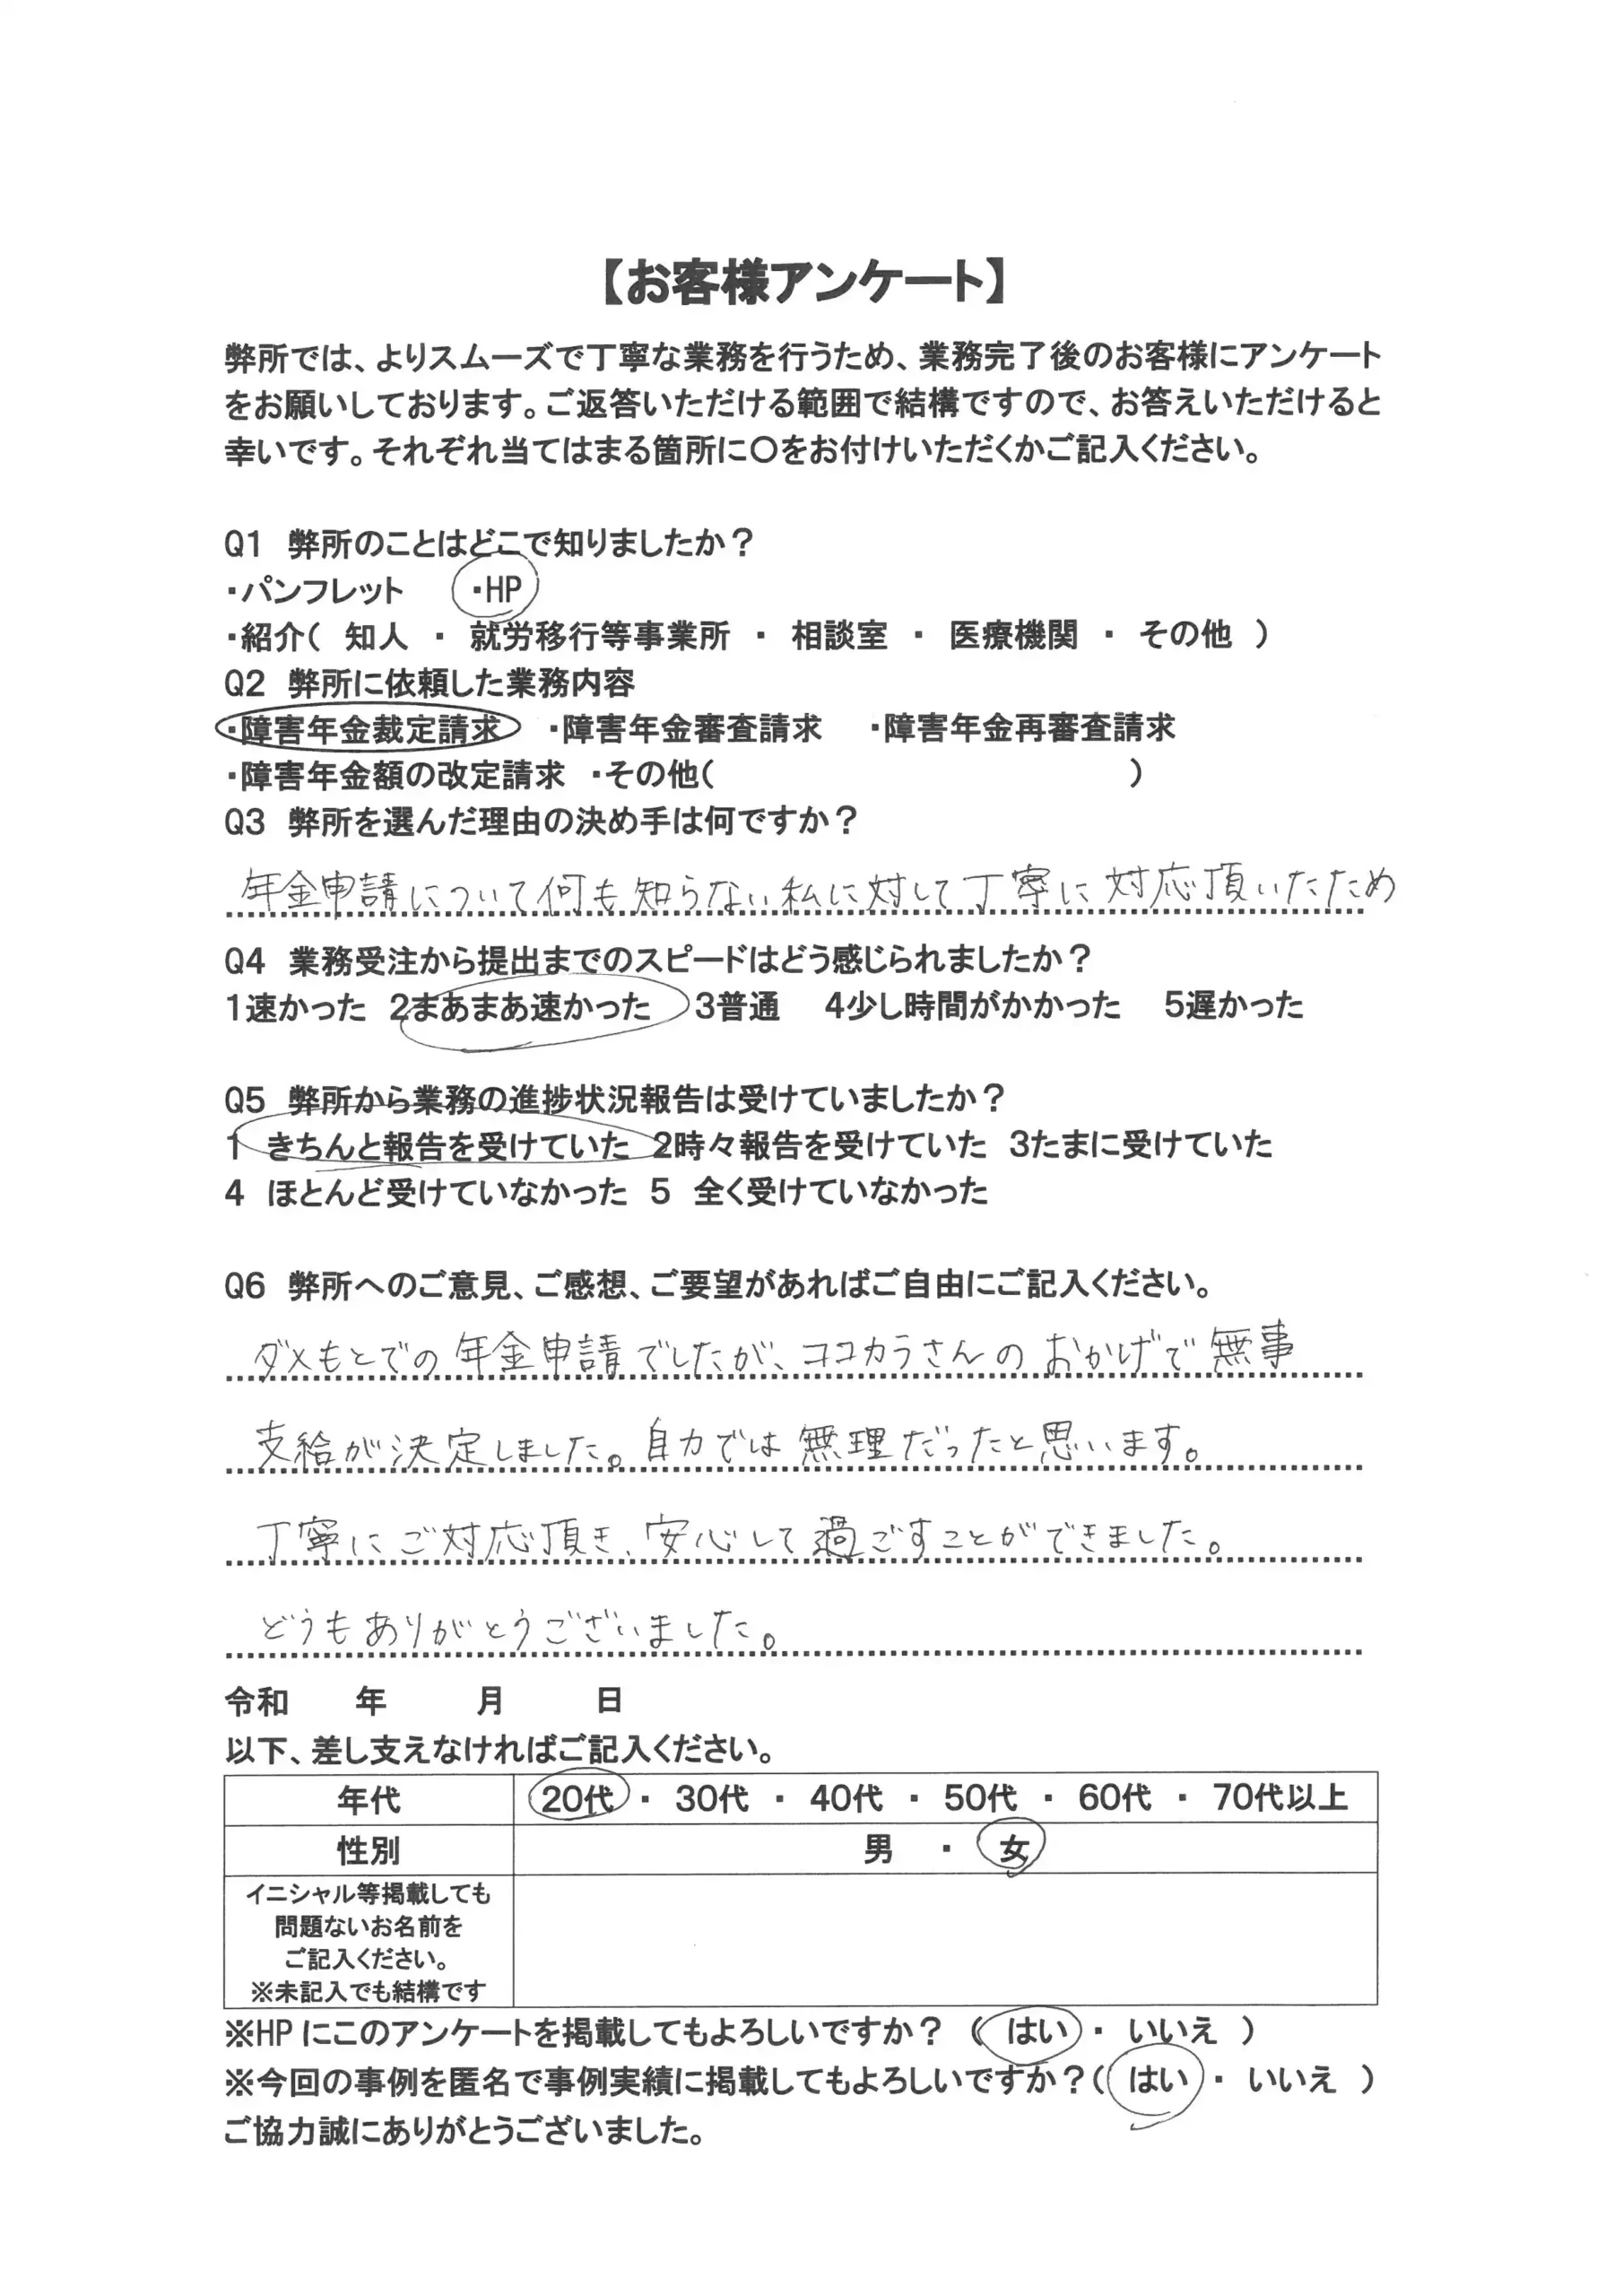 【お客様アンケート】
弊所では、よりスムーズで丁寧な業務を行うため、業務完了後のお客様にアンケート
をお願いしております。ご返答いただける範囲で結構ですので、お答えいただけると
幸いです。それぞれ当てはまる箇所に〇をお付けいただくかご記入ください。
Q1 弊所のことはどこで知りましたか？
・パンフレット ・HP
・紹介( 知人 ・ 就労移行等事業所 ・ 相談室 ・ 医療機関 ・ その他 )
Q2 弊所に依頼した業務内容
・障害年金裁定請求 ・障害年金審査請求 ・障害年金再審査請求
・障害年金額の改定請求 ・その他( )
Q3 弊所を選んだ理由の決め手は何ですか？
年金申請について何も知らない私に対して丁寧に対応頂いたため
Q4 業務受注から提出までのスピードはどう感じられましたか？
1速かった 2まあまあ速かった 3普通 4少し時間がかかった 5遅かった
Q5 弊所から業務の進捗状況報告は受けていましたか？
1 きちんと報告を受けていた 2時々報告を受けていた 3たまに受けていた
4 ほとんど受けていなかった 5 全く受けていなかった
Q6 弊所へのご意見、ご感想、ご要望があればご自由にご記入ください。
ダメもとでの年金申請でしたが、ココカラさんのおかげで無事
支給が決定しました。自力では無理だったと思います。
丁寧にご対応頂き、安心して過ごすことができました。
どうもありがとうございました。
令和 年 月 日
以下、差し支えなければご記入ください。
年代 20代 ・ 30代 ・ 40代 ・ 50代 ・ 60代 ・ 70代以上
性別 男 ・ 女
イニシャル等掲載しても
問題ないお名前を
ご記入ください。
※未記入でも結構です
※HPにこのアンケートを掲載してもよろしいですか？ ( はい ・ いいえ )
※今回の事例を匿名で事例実績に掲載してもよろしいですか？( はい ・ いいえ )
ご協力誠にありがとうございました。